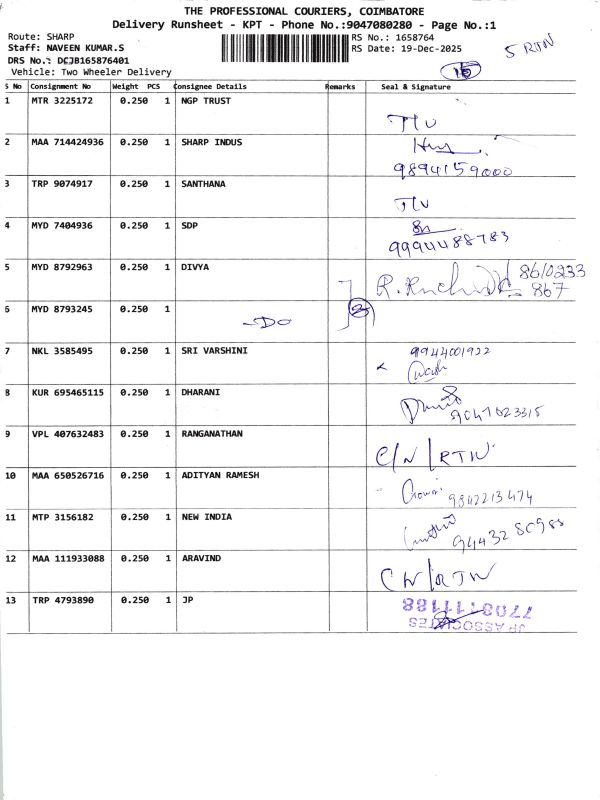 THE PROFESSIONAL COURIERS, COIMBATORE
Delivery Runsheet - KPT - Phone No.:9047080280 - Page No.:1
Route: SHARP RS No.: 1658764
Staff: NAVEEN KUMAR.S RS Date: 19-Dec-2025 5 RTN
DRS No.: DCJB165876401
Vehicle: Two Wheeler Delivery
S No Consignment No Weight PCS Consignee Details Remarks Seal & Signature
1 MTR 3225172 0.250 1 NGP TRUST
2 MAA 714424936 0.250 1 SHARP INDUS
9894159000
3 TRP 9074917 0.250 1 SANTHANA
4 MYD 7404936 0.250 1 SDP
9994488783
5 MYD 8792963 0.250 1 DIVYA 8610233
867
6 MYD 8793245 0.250 1 -DO 2
7 NKL 3585495 0.250 1 SRI VARSHINI 9944001922
8 KUR 695465115 0.250 1 DHARANI
9047023315
9 VPL 407632483 0.250 1 RANGANATHAN
C/N/RTN
10 MAA 650526716 0.250 1 ADITYAN RAMESH
9842213474
11 MTP 3156182 0.250 1 NEW INDIA
12 MAA 111933088 0.250 1 ARAVIND
CN/RTN
13 TRP 4793890 0.250 1 JP
7708111188
JP ASSOCIATES